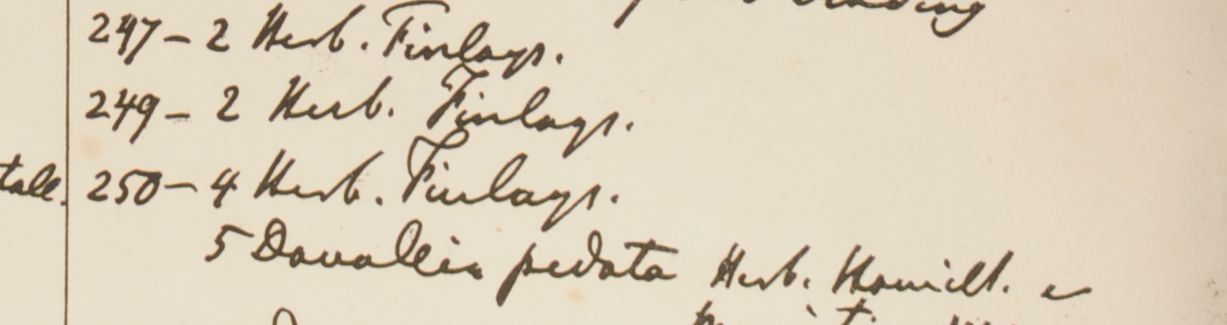 247 – 2 Herb. Finlays.
249 – 2 Herb. Finlays.
tall. 250 – 4 Herb. Finlays.
5 Davallia pedata Herb. Hamilt. e